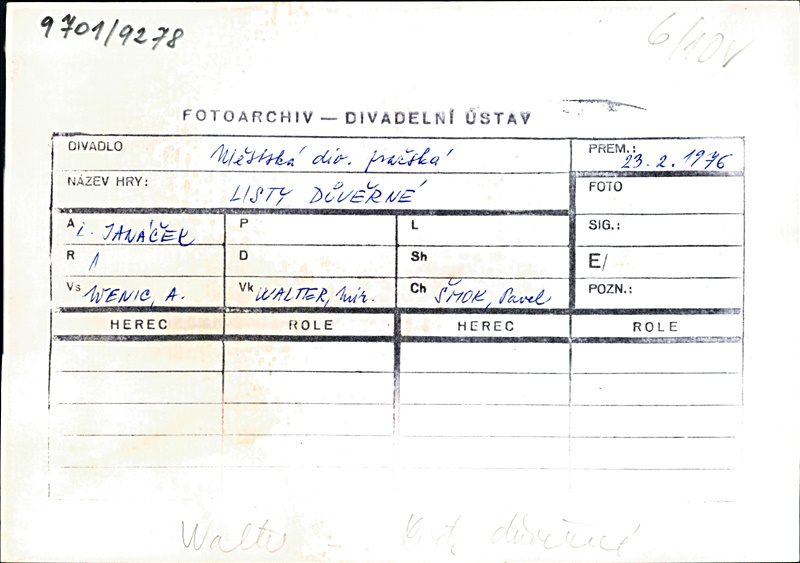 9701/9278
6/10V
FOTOARCHIV — DIVADELNÍ ÚSTAV
DIVADLO Městská div. pražská PREM.: 23. 2. 1976
NÁZEV HRY: LISTY DŮVĚRNÉ FOTO
A L. JANÁČEK P L SIG.:
R D Sh E/
Vs WENIG, A. Vk WALTER, Mir. Ch ŠMOK, Pavel POZN.:
HEREC ROLE HEREC ROLE
Walter – Listy důvěrné